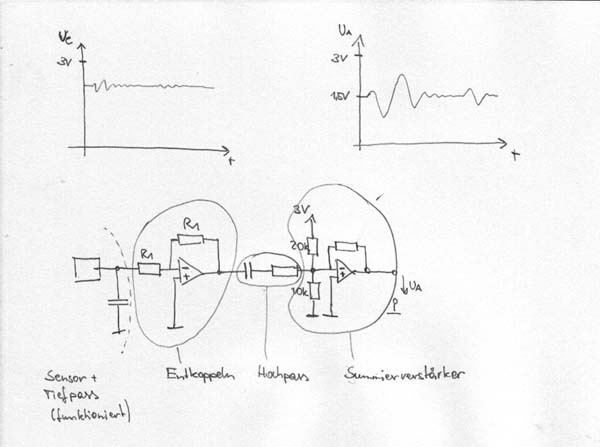 Ue
3V
t
UA
3V
1,5V
t
R1
R1
3V
20k
10k
UA
Entkoppeln
Hochpass
Summierverstärker
Sensor +
Tiefpass
(funktioniert)